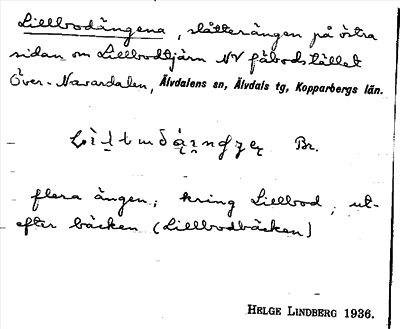 Lillbodängena, slåtterängen på östra
sidan om Lillbodtjärn NV fäbodstället
Över-Navardalen, Älvdalens sn, Älvdals tg, Kopparbergs län.
Br.
flera ängen; kring Lillbod, ut-
efter bäcken (Lillbodbäcken)
HELGE LINDBERG 1936.